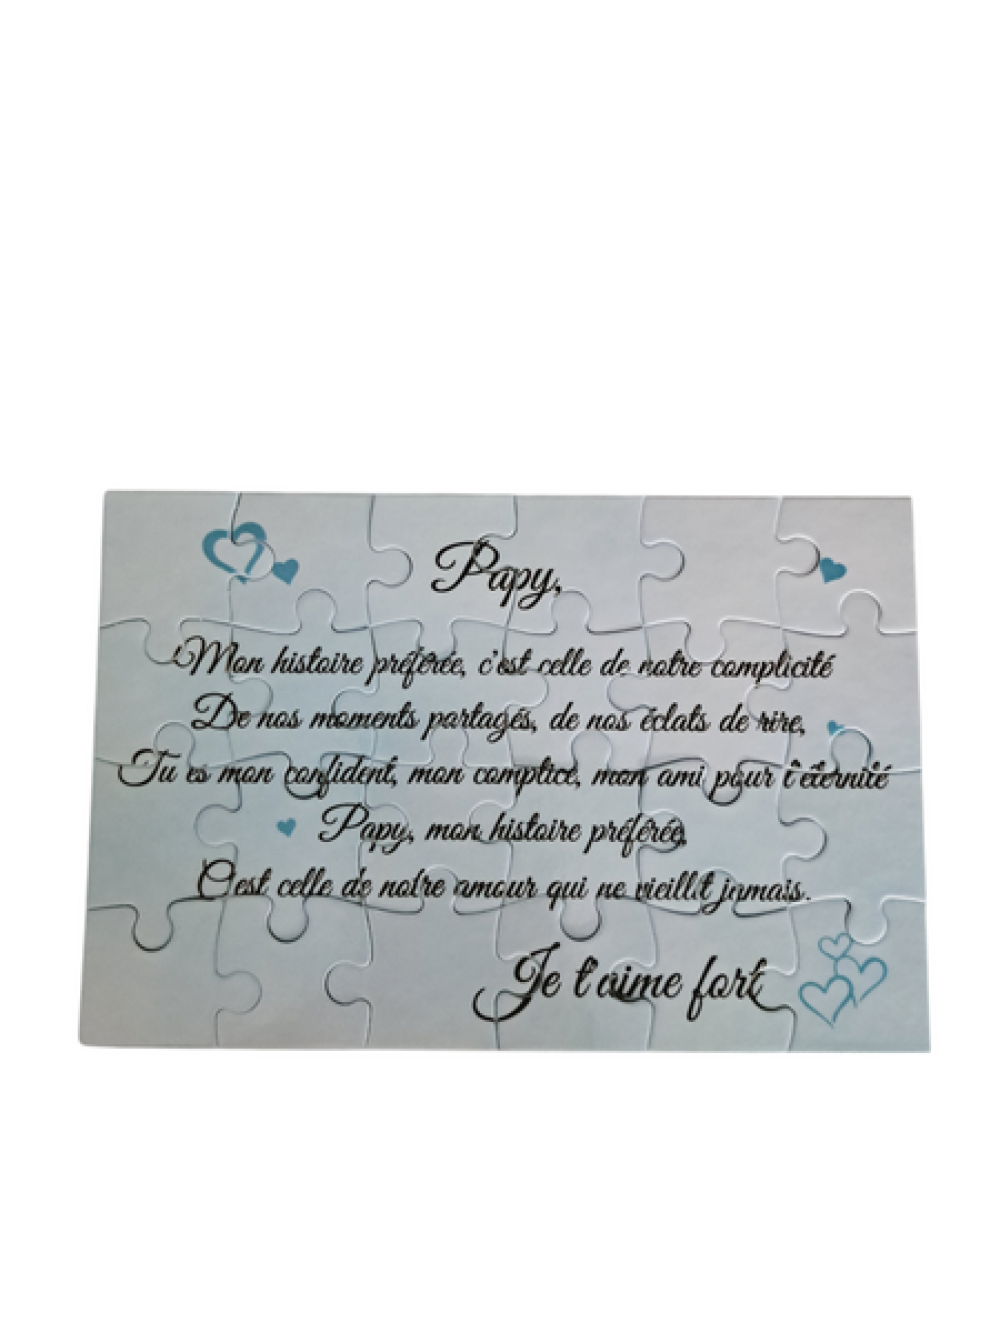 Papy,
Mon histoire préférée, c'est celle de notre complicité
De nos moments partagés, de nos éclats de rire,
Tu es mon confident, mon complice, mon ami pour l'éternité
Papy, mon histoire préférée,
C'est celle de notre amour qui ne vieillit jamais.
Je t'aime fort